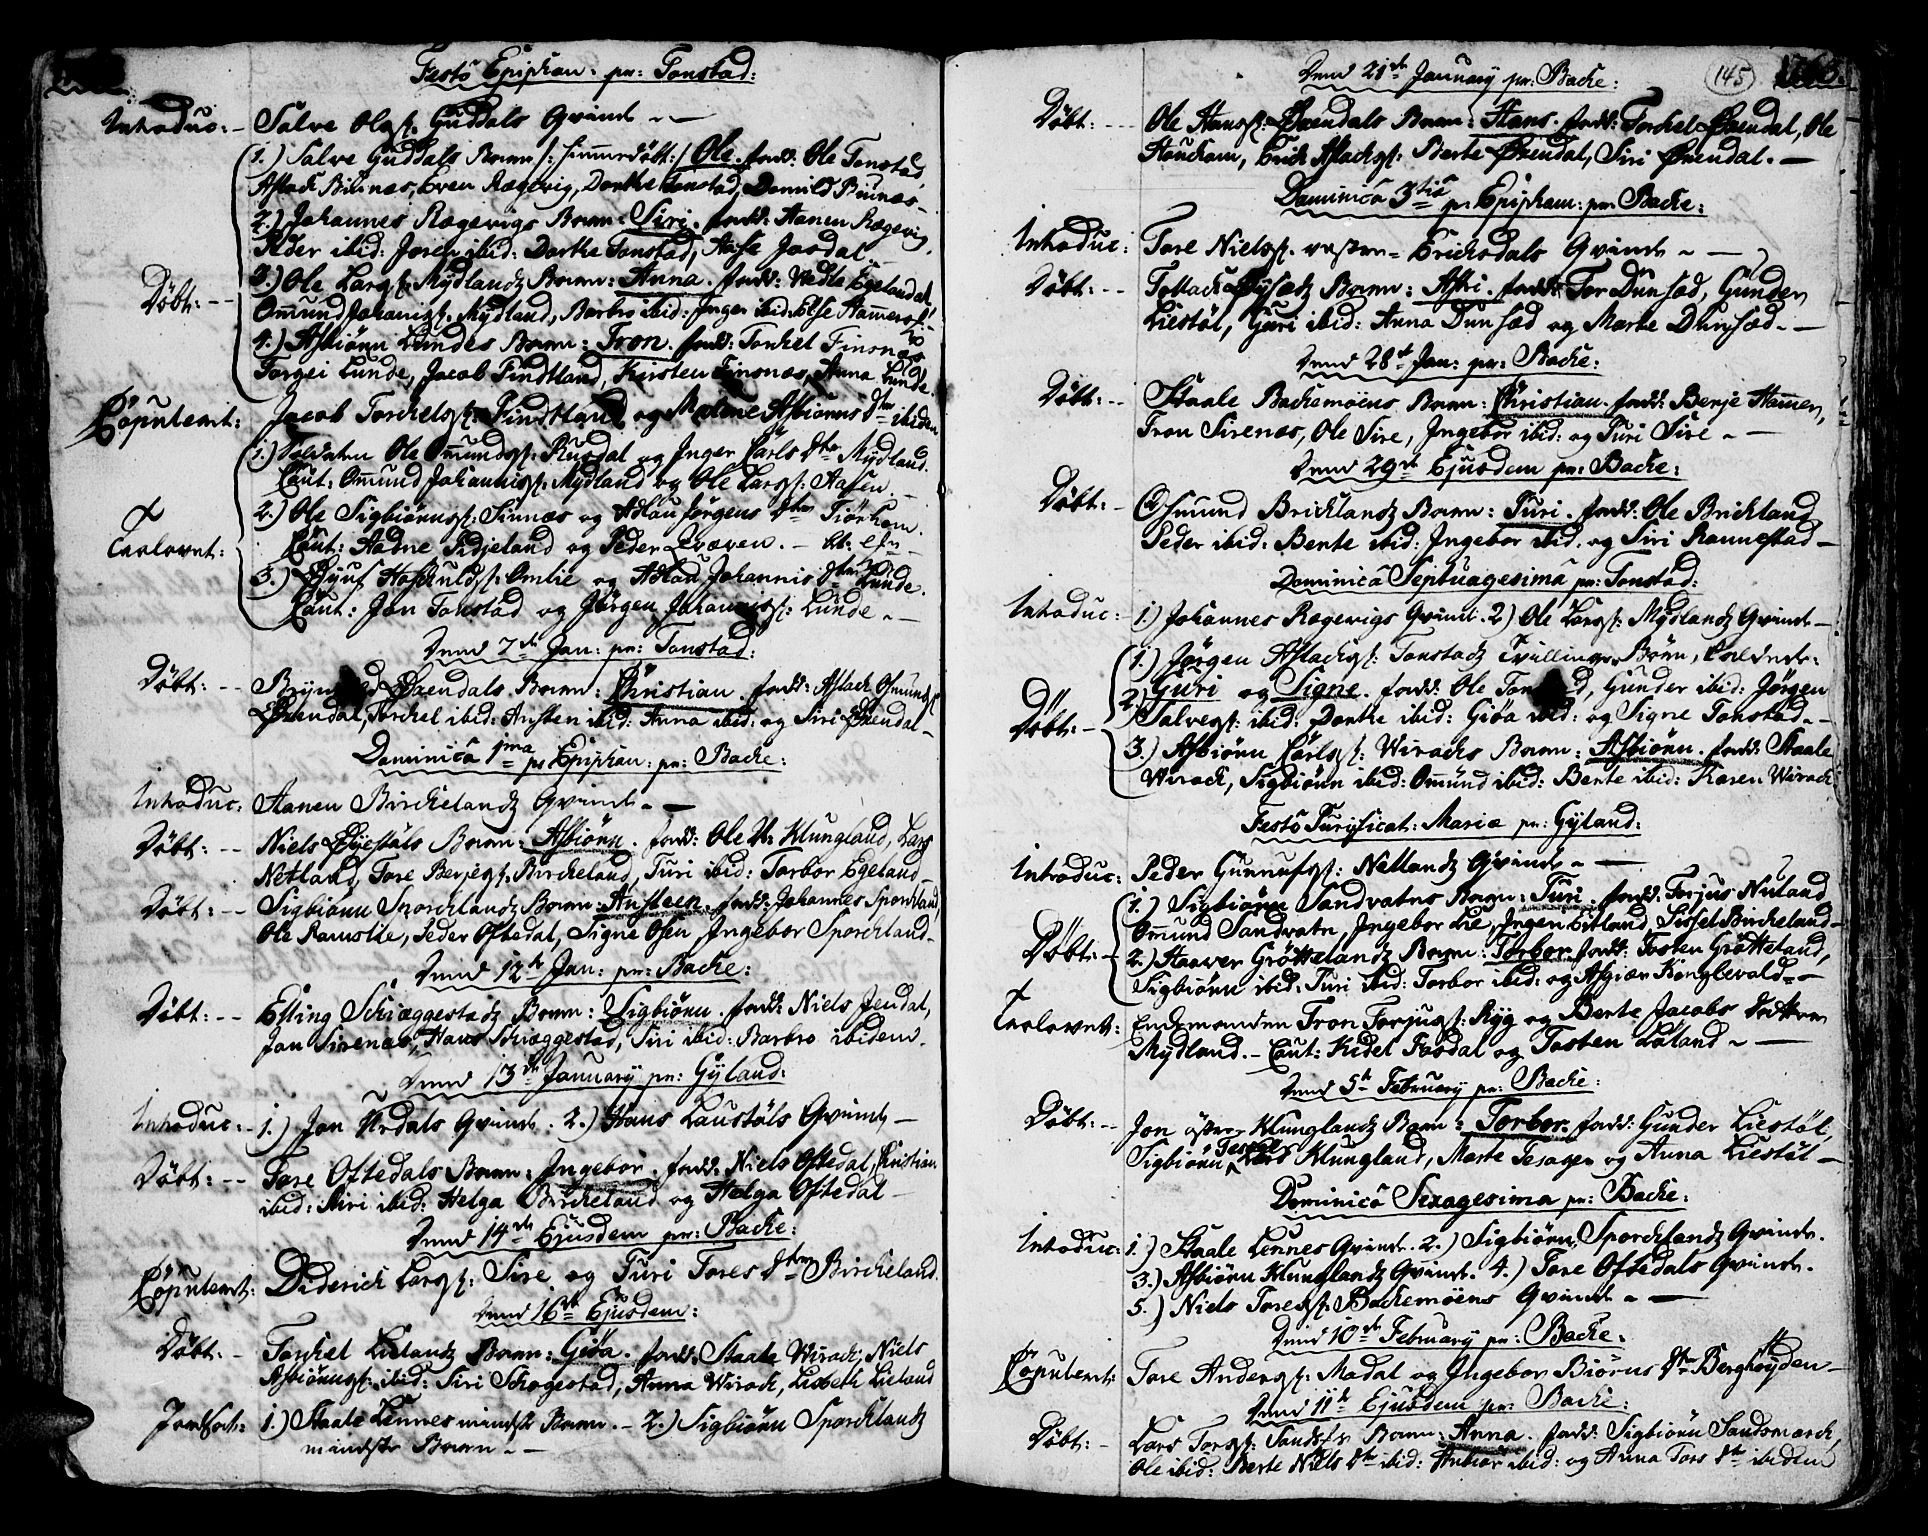 Festô Epiphan: pr: Tonstad:
Introduc: – Salve Olsøs: Guddals Qvinde –
1.) Salve Guddals Barn /: hiemmedöbt :/ Ole. fadd: Ole Tonstad
Aslack Biunæs, Even Rægevig, Dorthe Tonstad, Biunæs –
2.) Johannes Rægevigs Barn: Siri. fadd: Aanen Rægevig
Peder ibid: ibid: Dorthe Tonstad, Josdal –
Döbt: –
3.) Ole Larsøs: Mydlands Barn: Anna. fadd: Egeland
Omund Johannisøs: Mydland, Barbro ibid: Inger ibid: Else
4.) Asbiörn Lundes Barn: Tron. fadd: Torkel Finsnæs
Torgei Lunde, Jacob Findtland, Kirsten Finsnæs, Anna Lunde
Cöpulerit: Jacob Torkelsøs: Findtland og Malene Asbiörns Dtr ibidem
1.) Soldaten Ole Omundsøs: Rusdal og Inger Carls Dtr Mydland.
Caut: Omund Johannisøs: Mydland og Ole Larsøs: Aasen –
2.) Ole Sigbiörnsøs: Sinnæs og Adlau Jörgens Dtr Tiörhom
Trolovet: Caut: Aadne Tidjeland og Peder Qvæven. –
3.) Omlie og Adlau Johannis Dtr Lunde.
Caut: Jon Tonstad og Jörgen Johannisøs: Lunde –
Dend 7de Jan: pr: Tonstad:
Döbt: – Öxendals Barn: Christian. fadd: Aslack Osmundsøs
Öxendal, Torkel ibid: Austen ibid: Anna ibid: og Siri Öxendal –
Dominicâ 1ma pr Epiphan: pr: Backe:
Introduc: Aanen Birckelands Qvinde –
Döbt: – Niels Öyestöls Barn: Asbiörn. fadd: Ole Klungland, Lars
Netland, Tore Berjesøs: Birckeland, Turi ibid: Torbor Egeland
Döbt: – Sigbiörn Sporcklands Barn: Austeen. fadd: Johannes Sporckland,
Ole Ramslie, Peder Oftedal, Signe Osen, Ingebor Sporckland –
Dend 12te Jan: pr: Backe:
Döbt: – Elling Schiæggestads Barn: Sigbiörn. fadd: Niels Jendal,
Jon Sirenæs, Hans Schiæggestad, Siri ibid: Barbro ibidem.
Dend 13de January pr: Gyland:
Introduc: – 1.) Jon Urdals Qvinde. 2.) Hans Laustöls Qvinde –
Döbt: – Tore Oftedals Barn: Ingebor. fadd: Niels Oftedal, Christian
ibid: Siri ibid: Helga Birckeland og Helga Oftedal –
Dend 14de Ejusdem pr: Backe:
Cöpulerit: Diderich Larsøs: Sire og Turi Tores Dtr Birckeland.
Dend 16de Ejusdem:
Döbt: – Torkel Lielands Barn: Giöa. fadd: Staale Wirack, Niels
Asbiörnsøs: ibid: Siri Schogestad, Anna Wirack, Lisbeth Lieland
Jordfæst: 1.) Staale Lennes mindste Barn. – 2.) Sigbiörn Sporcklands
mindste Barn –
Dend 21de January pr: Backe: 145
Döbt: – Ole Hansøs: Öxendals Barn: Hans. fadd: Torkel Öxendal, Ole
Houchom, Erich Aslacksøs: Berte Öxendal, Siri Öxendal. –
Dominicâ 3tiâ pr Epiphan: pr: Backe:
Introduc: Tore Nielsøs: Erichsdals Qvinde –
Döbt: – Tollack Barn: Astri. fadd: Tor Dunsæd, Gunder
Liestöl, Guri ibid: Anna Dunsæd og Marte Dunsæd –
Dend 28de Jan: pr: Backe:
Döbt: – Staale Backemöens Barn: Christian. fadd: Berje Hammer,
Tron Sirenæs, Ole Sire, Ingebor ibid: og Turi Sire –
Dend 29de Ejusdem pr: Backe:
Döbt: – Osmund Bricklands Barn: Turi. fadd: Ole Brickland
Peder ibid: Bente ibid: Ingebor ibid: og Siri Rannestad –
Dominicâ Septuagesima pr: Tonstad:
Introduc: 1.) Johannes Rægevigs Qvinde. 2.) Ole Larsøs: Mydlands Qvinde –
1.) Jörgen Aslacksøs: Tonstads Tvillinger Börn, kaldede:
2.) Guri og Signe. fadd: Ole Tonstad, Gunder ibid: Jörgen
Döbt: – Salvesøs: ibid: Dorthe ibid: Giöa ibid: og Signe Tonstad –
3.) Asbiörn Carlsøs: Wiracks Barn: Asbiörn. fadd: Staale
Wirack, Sigbiörn ibid: Omund ibid: Bente ibid: Karen Wirack
Festô Purificat: Mariæ pr: Gyland:
Introduc: Peder Gunnufsøs: Netlands Qvinde –
1.) Sigbiörn Sandvatns Barn: Turi. fadd: Torjus Nuland
Döbt: – Omund Sandvatn, Ingebor Lie, Inger Eitland, Sissel Birckeland –
2.) Haaver Gröttelands Barn: Torbor. fadd: Tosten Grötteland,
Sigbiörn ibid: Turi ibid: Torbor ibid: og Asgiær Konglevold –
Trolovet: Enckemanden Tron Torjusøs: Ryg og Berte Jacobs Dotter
Mydland. – Caut: Kidel Josdal og Tosten Löland –
Dend 5te February pr: Backe:
Döbt: – Jon östre Klunglands Barn: Torbor. fadd: Gunder Liestöl,
Sigbiörn Klungland, Marte Tesager og Anna Liestöl –
Dominicâ Sexagesima pr: Backe:
Introduc: 1.) Staale Lennes Qvinde. 2.) Sigbiörn Sporcklands Qvinde.
3.) Asbiörn Klunglands Qvinde. 4.) Tore Oftedals Qvinde.
5.) Niels Toresøs: Backemöens Qvinde –
Dend 10de February pr: Backe:
Cöpulerit: Tore Andersøs: Modal og Ingebor Biörns Dtr Berghöyden –
Dend 11te Ejusdem pr: Backe:
Döbt: – Lars Torsøs: Barn: Anna. fadd: Sigbiörn Sandsmarck,
Ole ibid: Berte Niels Dtr ibid: ibid: og Anna Tors Dtr ibidem